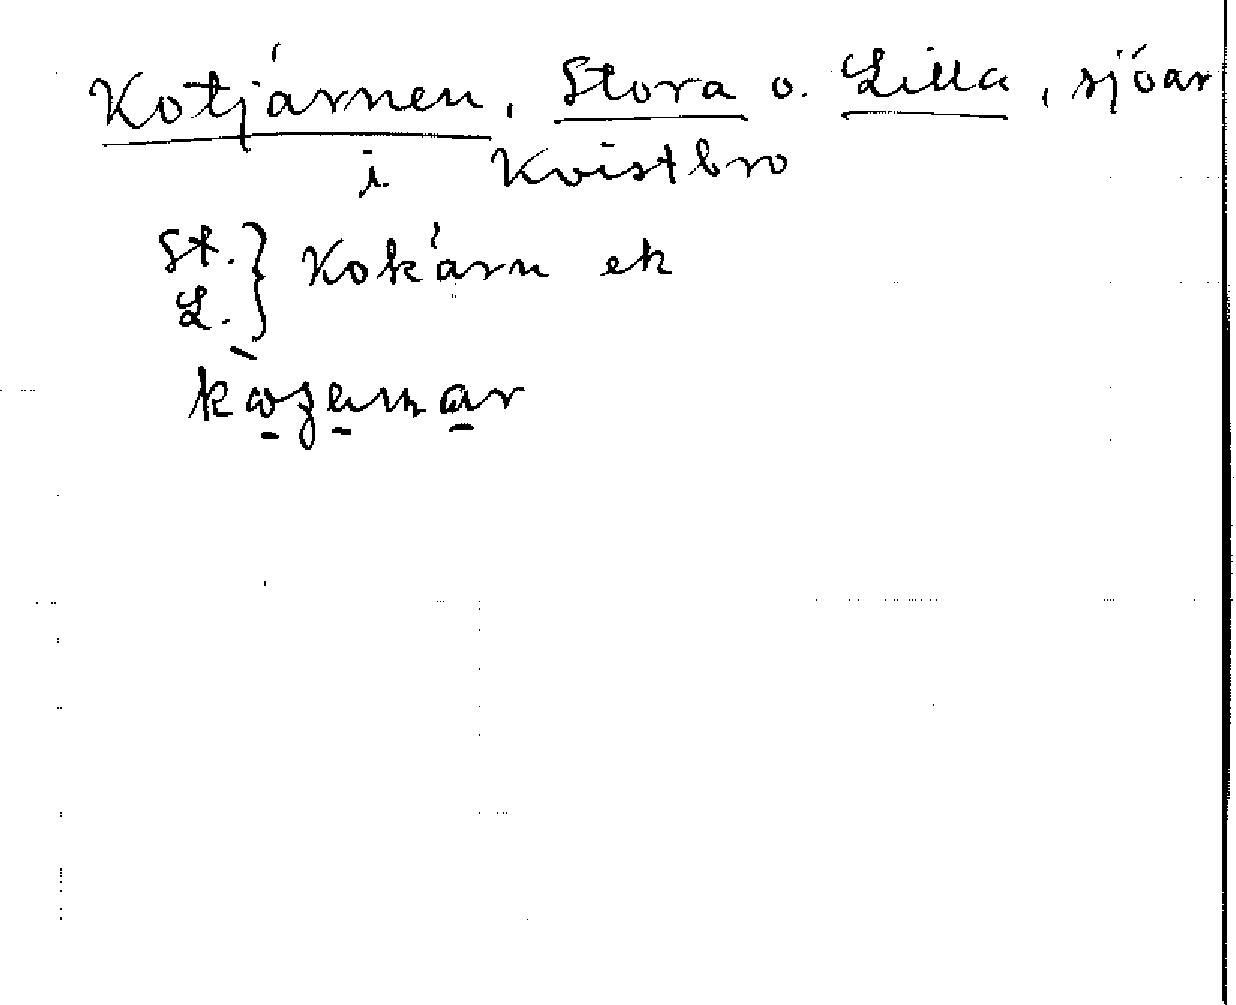 Kotjärnen, Stora o. Lilla, sjöar
i Kvistbro
St. } Kokärn ek
L. }